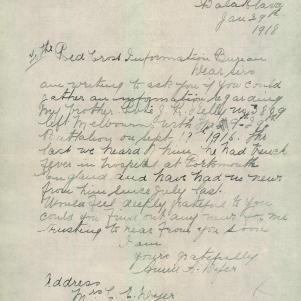 Balaklava
Jan 29th
1918
To the Red Cross Information Bureau
Dear Sirs
am writing to ask you if you could
gather any information regarding
my brother Pte J. R. Kelly no 3869
left Melbourne with
Battalion on Sept 1916. The
last we heard of him he had trench
fever in hospital at
England and have had no news
from him since July last.
Would feel deeply grateful to you
could you find out any news for me
trusting to hear from you soon
I am
yours gratefully
Annie A. Dyer
Address
Mrs C. E. Dyer